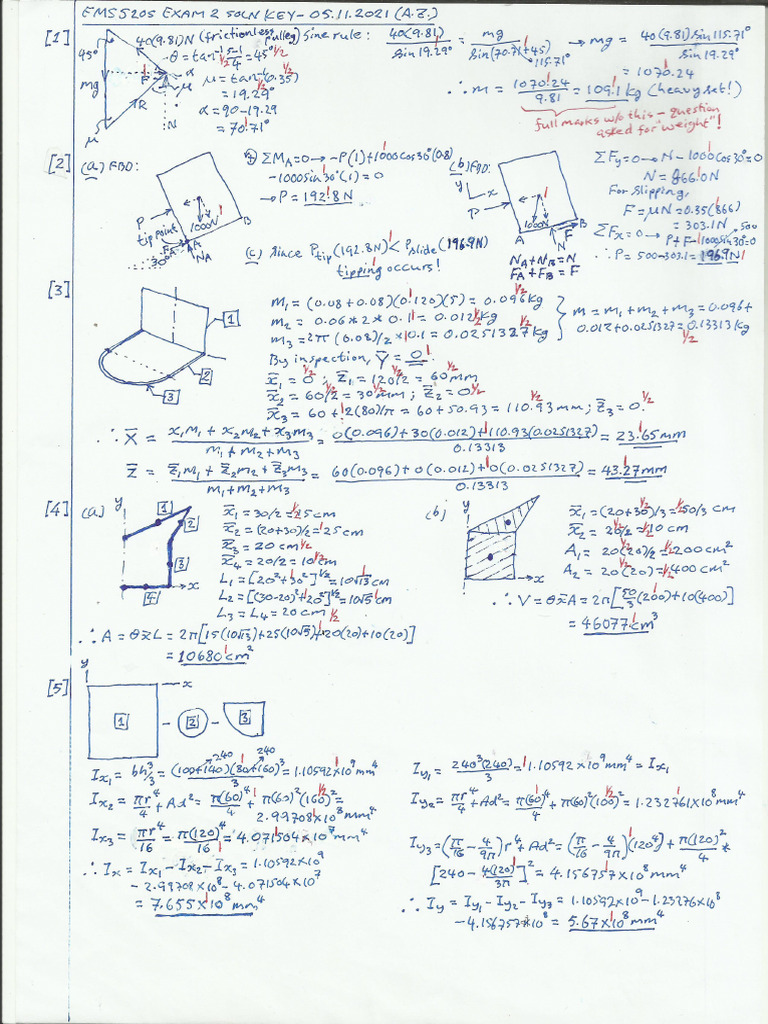 EMS520S EXAM 2 SOLN KEY - 05.11.2021 (A.Z.)
[1] 45° mg μ R N α μ
40(9.81)N (frictionless pulley)
θ = tan⁻¹ = 45° 1/2
μ = tan⁻¹(0.35)
= 19.29°
α = 90 - 19.29
= 70.71°
Sine rule: 40(9.81)/sin 19.29° = mg/sin(70.71+45) → mg = 40(9.81) sin 115.71°/sin 19.29°
115.71°
= 1070.24
∴ m = 1070.24/9.81 = 109.1 kg (heavy set!)
full marks w/o this - question
asked for "weight"!
[2] (a) FBD:
P tip point 1000N A B NA 30°
ΣMA = 0 → -P(1) + 1000cos30°(0.8)
-1000sin30°(1) = 0
→ P = 192.8 N
(b) FBD:
y x P 1000N A B F N
NA + NB = N
FA + FB = F
ΣFy = 0 → N - 1000cos30° = 0
N = 866.0N
For slipping,
F = μN = 0.35(866)
= 303.1N
ΣFx = 0 → P + F - 1000sin30° = 0
500
∴ P = 500 - 303.1 = 196.9N
(c) Since Ptip (192.8N) < Pslide (196.9N)
tipping occurs!
[3] 1 2 3
m1 = (0.08 + 0.08)(0.120)(5) = 0.096 kg
m2 = 0.06 * 2 * 0.1 = 0.012 kg
m3 = 2π(0.08)/2 * 0.1 = 0.0251327 kg
m = m1 + m2 + m3 = 0.096 +
0.012 + 0.0251327 = 0.13313 kg
By inspection, Ȳ = 0
x̄1 = 0 ; z̄1 = 120/2 = 60 mm
x̄2 = 60/2 = 30 mm ; z̄2 = 0
x̄3 = 60 + 2(80)/π = 60 + 50.93 = 110.93 mm ; z̄3 = 0.
∴ X̄ = x̄1m1 + x̄2m2 + x̄3m3/m1 + m2 + m3 = 0(0.096) + 30(0.012) + 110.93(0.0251327)/0.13313 = 23.65 mm
Z̄ = z̄1m1 + z̄2m2 + z̄3m3/m1 + m2 + m3 = 60(0.096) + 0(0.012) + 0(0.0251327)/0.13313 = 43.27 mm
[4] (a) y 1 2 3 4 x
x̄1 = 30/2 = 15 cm
x̄2 = (20+30)/2 = 25 cm
x̄3 = 20 cm
x̄4 = 20/2 = 10 cm
L1 = [20² + 30²]^1/2 = 10√13 cm
L2 = [(30-20)² + 20²]^1/2 = 10√5 cm
L3 = L4 = 20 cm
∴ A = θx̄L = 2π[15(10√13) + 25(10√5) + 20(20) + 10(20)]
= 10680 cm²
(b) y x
x̄1 = (20+30)/3 = 50/3 cm
x̄2 = 20/2 = 10 cm
A1 = 20(20)/2 = 200 cm²
A2 = 20(20) = 400 cm²
∴ V = θx̄A = 2π[50/3(200) + 10(400)]
= 46077 cm³
[5] y x 1 - 2 - 3
Ix1 = bh³/3 = (100+140)(80+160)³/3 = 1.10592×10⁹ mm⁴
240 240
Ix2 = πr⁴/4 + Ad² = π(60)⁴/4 + π(60)²(160)² =
2.99708×10⁸ mm⁴
Ix3 = πr⁴/16 = π(120)⁴/16 = 4.071504×10⁷ mm⁴
∴ Ix = Ix1 - Ix2 - Ix3 = 1.10592×10⁹
- 2.99708×10⁸ - 4.071504×10⁷
= 7.655×10⁸ mm⁴
Iy1 = 240³(240)/3 = 1.10592×10⁹ mm⁴ = Ix1
Iy2 = πr⁴/4 + Ad² = π(60)⁴/4 + π(60)²(100)² = 1.232761×10⁸ mm⁴
Iy3 = (π/16 - 4/9π)r⁴ + Ad² = (π/16 - 4/9π)(120⁴) + π(120)²/4 *
[240 - 4(120)/3π]² = 4.156757×10⁸ mm⁴
∴ Iy = Iy1 - Iy2 - Iy3 = 1.10592×10⁹ - 1.23276×10⁸
- 4.156757×10⁸ = 5.67×10⁸ mm⁴